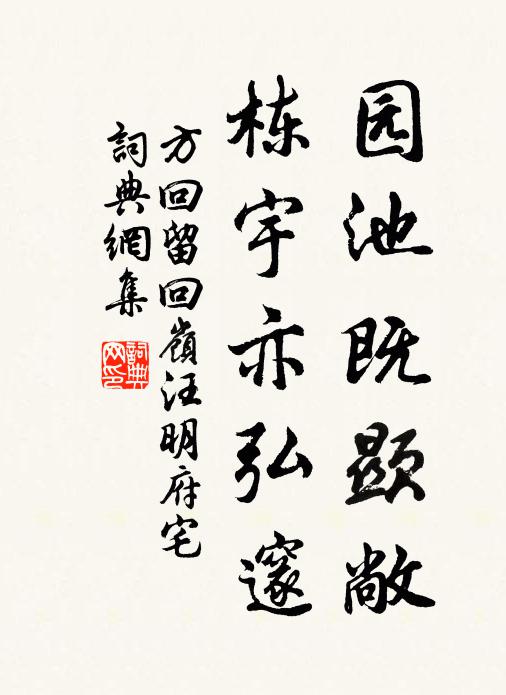 园池既显敞
栋宇亦弘邃
方回留回嶺汪明府宅
詞典網集
詞典网印